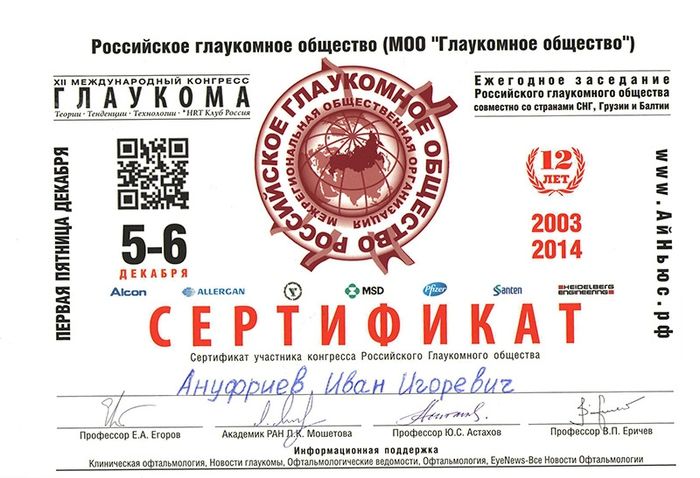 Российское глаукомное общество (МОО "Глаукомное общество")
XII МЕЖДУНАРОДНЫЙ КОНГРЕСС
ГЛАУКОМА
Теории · Тенденции · Технологии · "HRT Клуб Россия
ПЕРВАЯ ПЯТНИЦА ДЕКАБРЯ
5-6
ДЕКАБРЯ
РОССИЙСКОЕ ГЛАУКОМНОЕ ОБЩЕСТВО
МЕЖРЕГИОНАЛЬНАЯ ОБЩЕСТВЕННАЯ ОРГАНИЗАЦИЯ
Ежегодное заседание
Российского глаукомного общества
совместно со странами СНГ, Грузии и Балтии
12
ЛЕТ
2003
2014
www.АйНьюс.рф
Alcon ALLERGAN MSD Pfizer Santen HEIDELBERG ENGINEERING
СЕРТИФИКАТ
Сертификат участника конгресса Российского Глаукомного общества
Ануфриев Иван Игоревич
Профессор Е.А. Егоров Академик РАН Л.К. Мошетова Профессор Ю.С. Астахов Профессор В.П. Еричев
Информационная поддержка
Клиническая офтальмология, Новости глаукомы, Офтальмологические ведомости, Офтальмология, EyeNews-Все Новости Офтальмологии